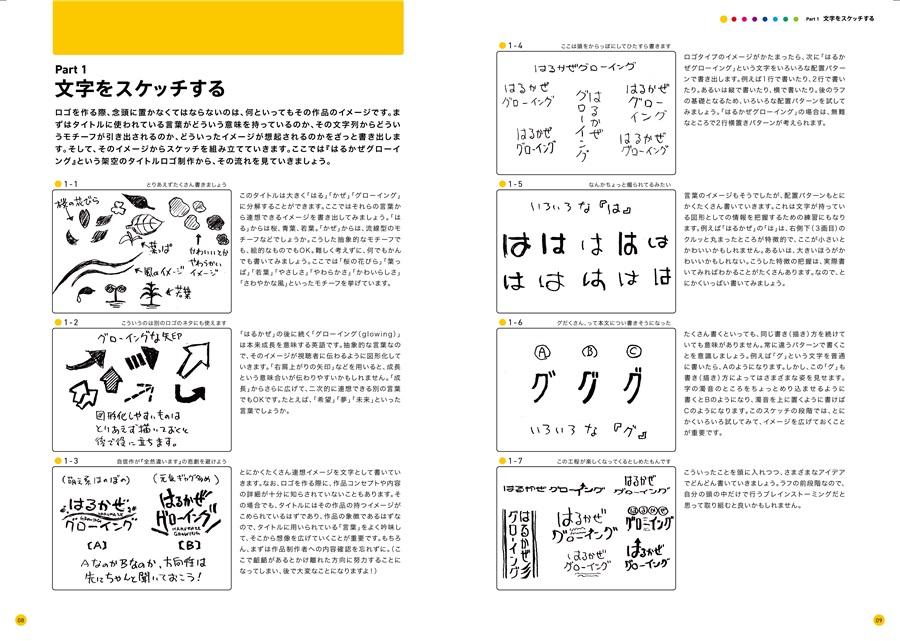 Part 1
文字をスケッチする
ロゴを作る際、念頭に置かなくてはならないのは、何といってもその作品のイメージです。ま
ずはタイトルに使われている言葉がどういう意味を持っているのか、その文字列からどうい
うモチーフが引き出されるのか、どういったイメージが想起されるのかをざっと書き出しま
す。そして、そのイメージからスケッチを組み立てていきます。ここでは『はるかぜグローイ
ング』という架空のタイトルロゴ制作から、その流れを見ていきましょう。
1-1
とりあえずたくさん書きましょう
桜の花びら
葉っぱ
かわいいとか
やわらかい
イメージ
風のイメージ
若葉
このタイトルは大きく「はる」「かぜ」「グローイング」
に分解することができます。ここではそれらの言葉か
ら連想できるイメージを書き出してみましょう。「は
る」からは桜、青葉、若葉。「かぜ」からは、流線型のモ
チーフなどでしょうか。こうした抽象的なモチーフで
も、絵的なものでもOK。難しく考えずに、何でもかん
でも書いてみましょう。ここでは「桜の花びら」「葉っ
ぱ」「若葉」「やさしさ」「やわらかさ」「かわいらしさ」
「さわやかな風」といったモチーフを挙げています。
1-2
こういうのは別のロゴのネタにも使えます
グローイングな矢印
図形化しやすいものは
とりあえず描いておくと
後で役に立ちます。
「はるかぜ」の後に続く「グローイング(glowing)」
は本来成長を意味する英語です。抽象的な言葉なの
で、そのイメージが視聴者に伝わるように図形化して
いきます。「右肩上がりの矢印」などを用いると、成長
という意味合いが伝わりやすいかもしれません。「成
長」からさらに広げて、二次的に連想できる別の言葉
でもOKです。たとえば、「希望」「夢」「未来」といった
言葉でしょうか。
1-3
自信作が『全然違います』の悲劇を避けよう
(萌え系ほのぼの)
(元気ギャグ多め)
はるかぜ
グローイング
はるかぜ
グローイング
HARUKAZE
GROWING
[A]
[B]
AなのかBなのか、方向性は
先にちゃんと聞いておこう!
とにかくたくさん連想イメージを文字として書いてい
きます。なお、ロゴを作る際に、作品コンセプトや内容
の詳細が十分に知らされていないこともあります。そ
の場合でも、タイトルにはその作品の持つイメージが
こめられているはずであり、作品の象徴であるはずな
ので、タイトルに用いられている「言葉」をよく吟味し
て、そこから想像を広げていくことが重要です。もちろ
ん、まずは作品制作者への内容確認を忘れずに。(こ
こで齟齬があるとかけ離れた方向に努力することに
なってしまい、後で大変なことになりますよ!)
08
Part 1 文字をスケッチする
1-4
ここは頭をからっぽにしてひたすら書きます
はるかぜグローイング
はるかぜ
グローイング
はるかぜ
グローイング
はるかぜ
グロー
イング
はるかぜ
グローイング
はるかぜ
グローイング
ロゴタイプのイメージがかたまったら、次に「はるか
ぜグローイング」という文字をいろいろな配置パター
ンで書き出します。例えば1行で書いたり、2行で書い
たり。あるいは縦で書いたり、横で書いたり。後のラフ
の基礎となるため、いろいろな配置パターンを試して
みましょう。「はるかぜグローイング」の場合は、無難
なところで2行横置きパターンが考えられます。
1-5
なんかちょっと煽られてるみたい
いろいろな『は』
は は は は は
は は は は は
言葉のイメージもそうでしたが、配置パターンもとに
かくたくさん書いていきます。これは文字が持ってい
る図形としての情報を把握するための練習にもなり
ます。例えば「はるかぜ」の「は」は、右側下(3画目)の
クルッと丸まったところが特徴的で、ここが小さいと
かわいいかもしれません。あるいは、大きいほうがか
わいいかもしれない。こうした特徴の把握は、実際書
いてみればわかることがたくさんあります。なので、と
にかくいっぱい書いてみましょう。
1-6
グだくさん、って本文につい書きそうになった
A B C
グ グ グ
いろいろな『グ』
たくさん書くといっても、同じ書き(描き)方を続けて
いても意味がありません。常に違うパターンで書くこ
とを意識しましょう。例えば「グ」という文字を普通
に書いたら、Aのようになります。しかし、この「グ」も
書き(描き)方によってはさまざまな姿を見せます。
字の濁音のところをちょっとめり込ませるように
書くとBのようになり、濁音を上に置くように書けば
Cのようになります。このスケッチの段階では、とに
かくいろいろ試してみて、イメージを広げておくこと
が重要です。
1-7
この工程が楽しくなってくるとしめたもんです
はるかぜグローイング
はるかぜ
グローイング
はるかぜ
グローイング
はるかぜ
グローイング
はるかぜ
グローイング
はるかぜ
グローイング
はるかぜ
グローイング
こういったことを頭に入れつつ、さまざまなアイデア
でどんどん書いていきましょう。ラフの前段階なので、
自分の頭の中だけで行うブレインストーミングだと
思って取り組むと良いかもしれません。
09